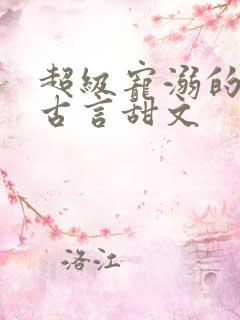 超级宠溺的
古言甜文
洛江